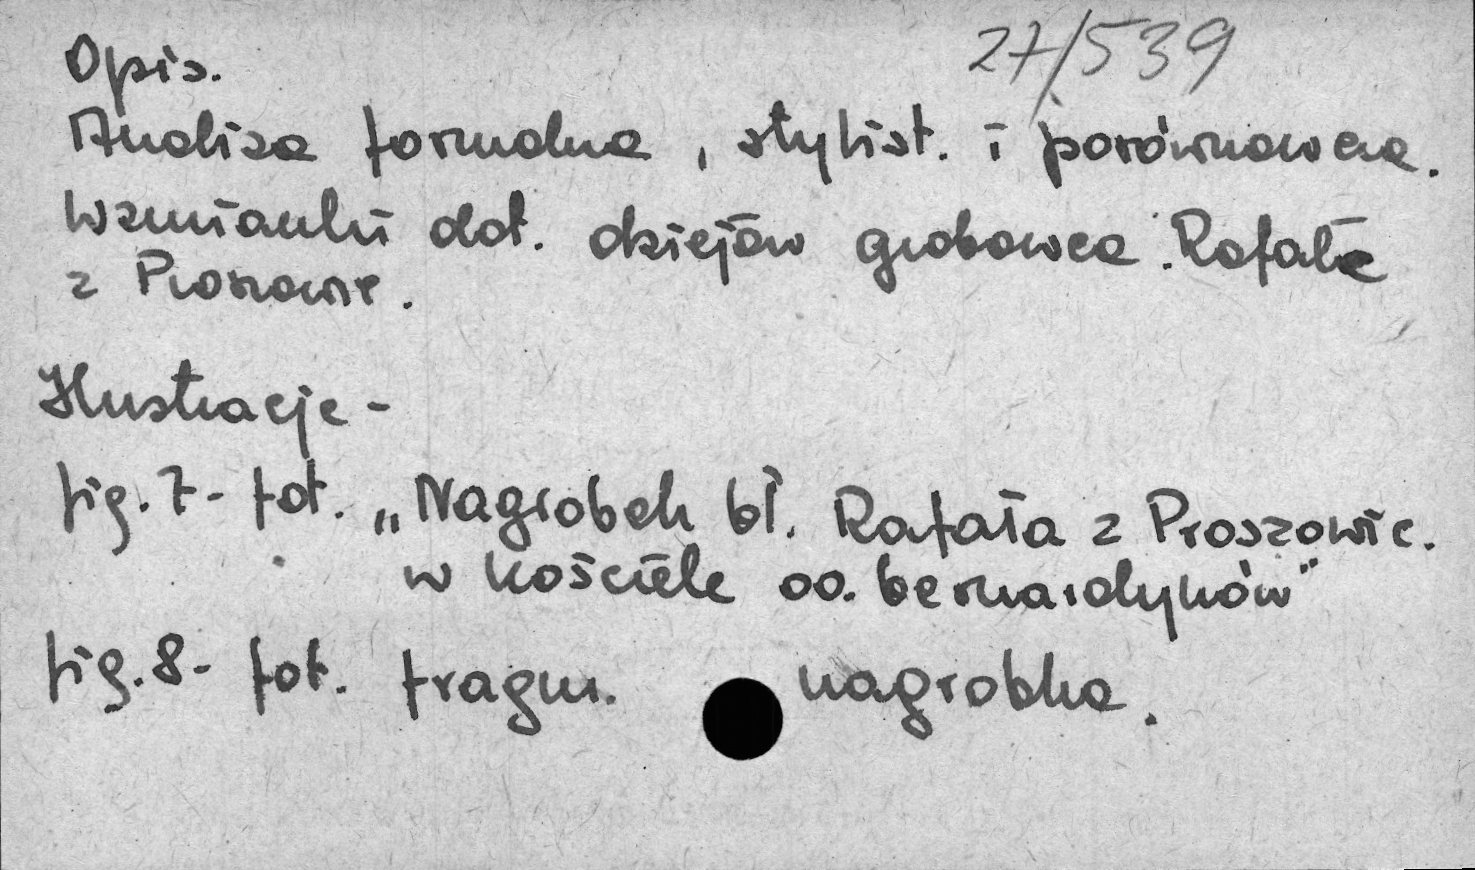 27/539
Opis.
Analiza formalna, stylist. i porównawcza.
Wzmianki dot. dziejów grobowca. Rafała
z Proszowic.
Ilustracje -
fig. 7 - fot. „Nagrobek bł. Rafała z Proszowic.
w kościele oo. bernardynów"
fig. 8 - fot. fragm. nagrobka.